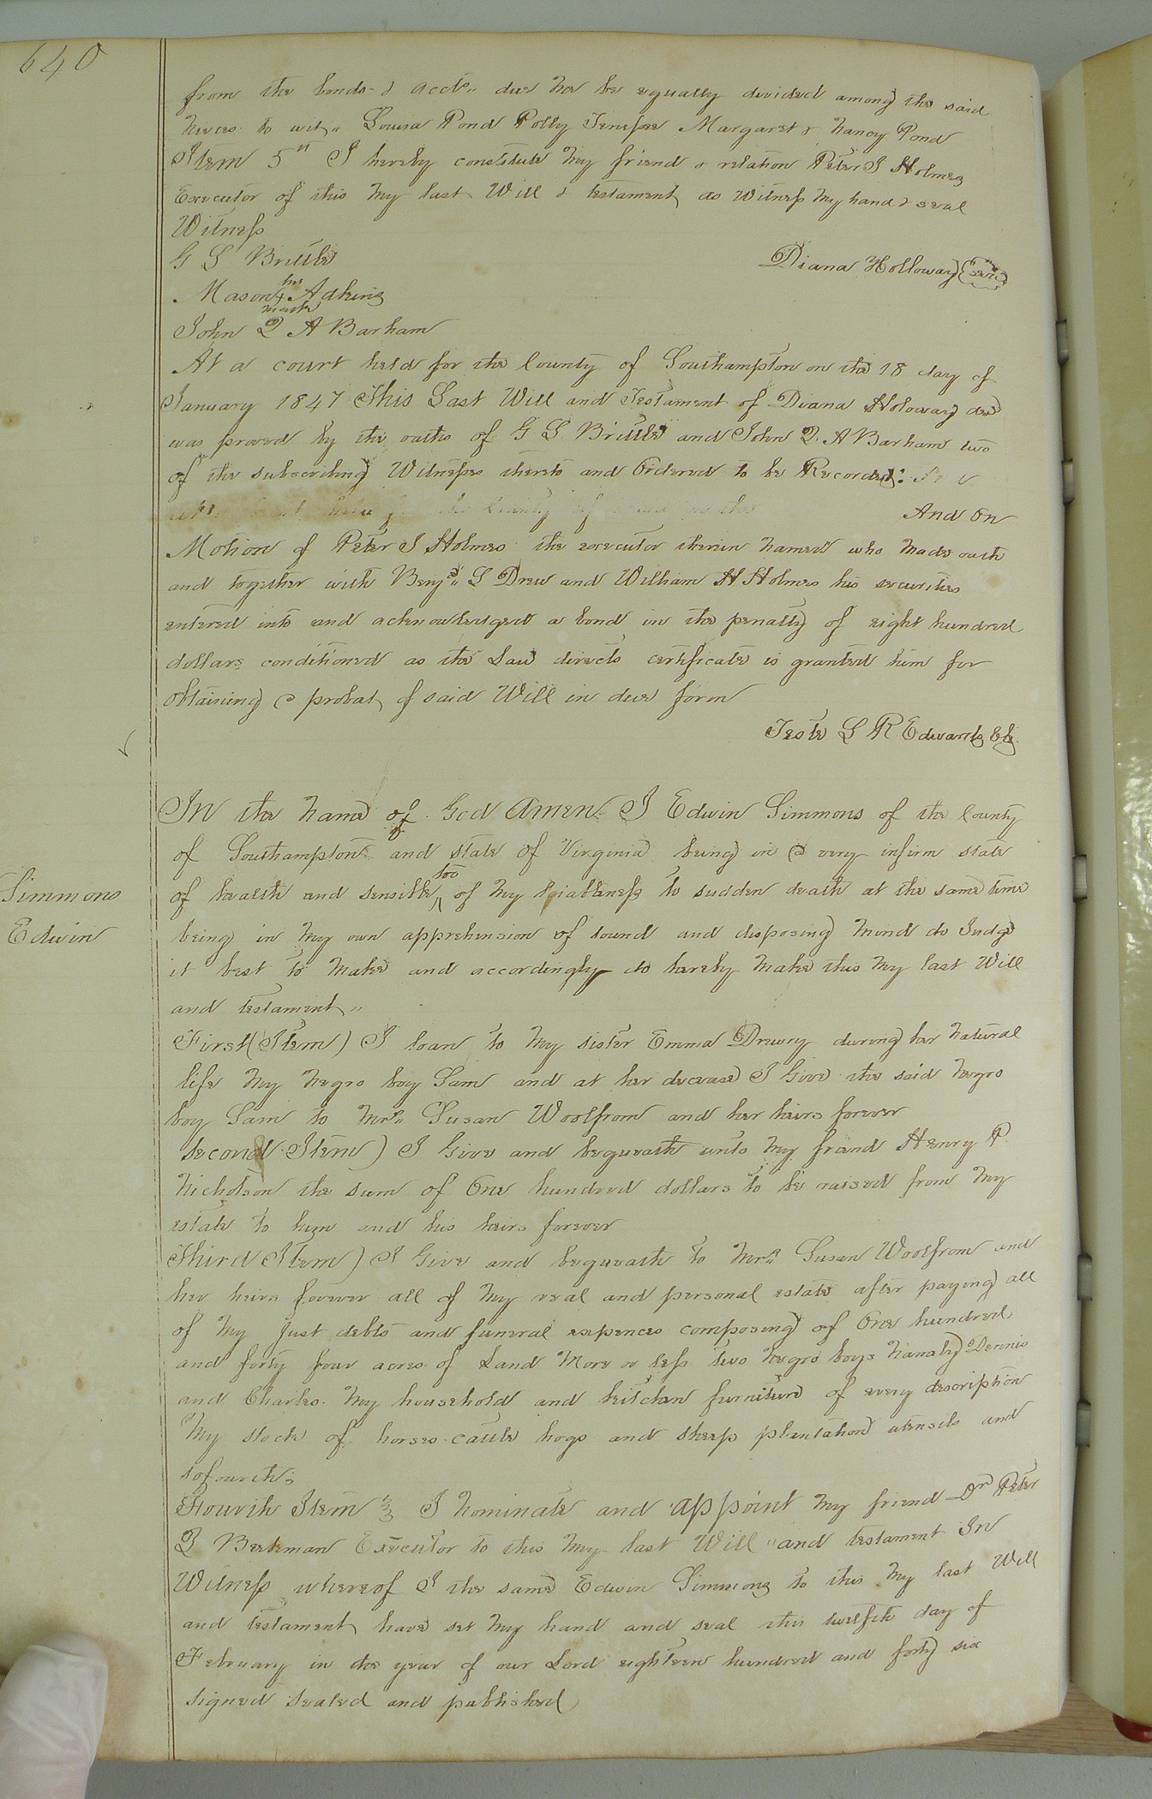 640
from the bonds & accts due me be equally divided among the said
neices to wit, Louisa Pond Polly Margaret & Nancy Pond
Item 5th I hereby constitute my friend & relation Peter J Holmes
Executor of this my last Will & testament as Witness my hand & seal
Witness
G S Brittle
Diana Holloway seal
his
Mason + Adkins
mark
John Q A Barham
At a court held for the County of Southampton on the 18 day of
January 1847 This Last Will and Testament of Diana Holoway decd
was proved by the oaths of G S Brittle and John Q. A Barham two
of the subscribing Witnesses thereto and Ordered to be Recorded:
And On
Motion of Peter J Holmes the executor therein named who made oath
and together with Benjn S Drew and William H Holmes his securities
entered into and acknowledged a bond in the penalty of eight hundred
dollars conditioned as the Law directs certificate is granted him for
obtaining a probat of said Will in due form
Teste L R Edwards Clk.
In the name of God Amen. I Edwin Simmons of the County
of Southampton and state of Virginia being in a very infirm state
too
of health and sensible of my liableness to sudden death at the same time
Simmons
Edwin
being in my own apprehension of sound and disposing mind do Judge
it best to make and accordingly do hereby make this my last Will
and testament
First (Item) I loan to my sister Emma Drewry during her natural
life my negro boy Sam and at her decease I Give the said negro
boy Sam to Mrs Susan Woolfrom and her heirs forever
second Item) I Give and bequeath unto my friend Henry P.
Nicholson the sum of One hundred dollars to be raised from my
estate to him and his heirs forever
Third Item) I Give and bequeath to Mrs Susan Woolfrom and
her heirs forever all of my real and personal estate after paying all
of my just debts and funeral expences composing of One hundred
and forty four acres of Land more or less two negro boys namely Dennis
and Charles. my household and kitchen furniture of every description
My stock of horses cattle hogs and sheep plantation utensils and
so fourth
Fourth Item I nominate and appoint my friend Dr Peter
Executor to this my last Will and testament In
Witness whereof I the same Edwin Simmons to this my last Will
and testament have set my hand and seal this twelfth day of
February in the year of our Lord eighteen hundred and forty six
signed sealed and published